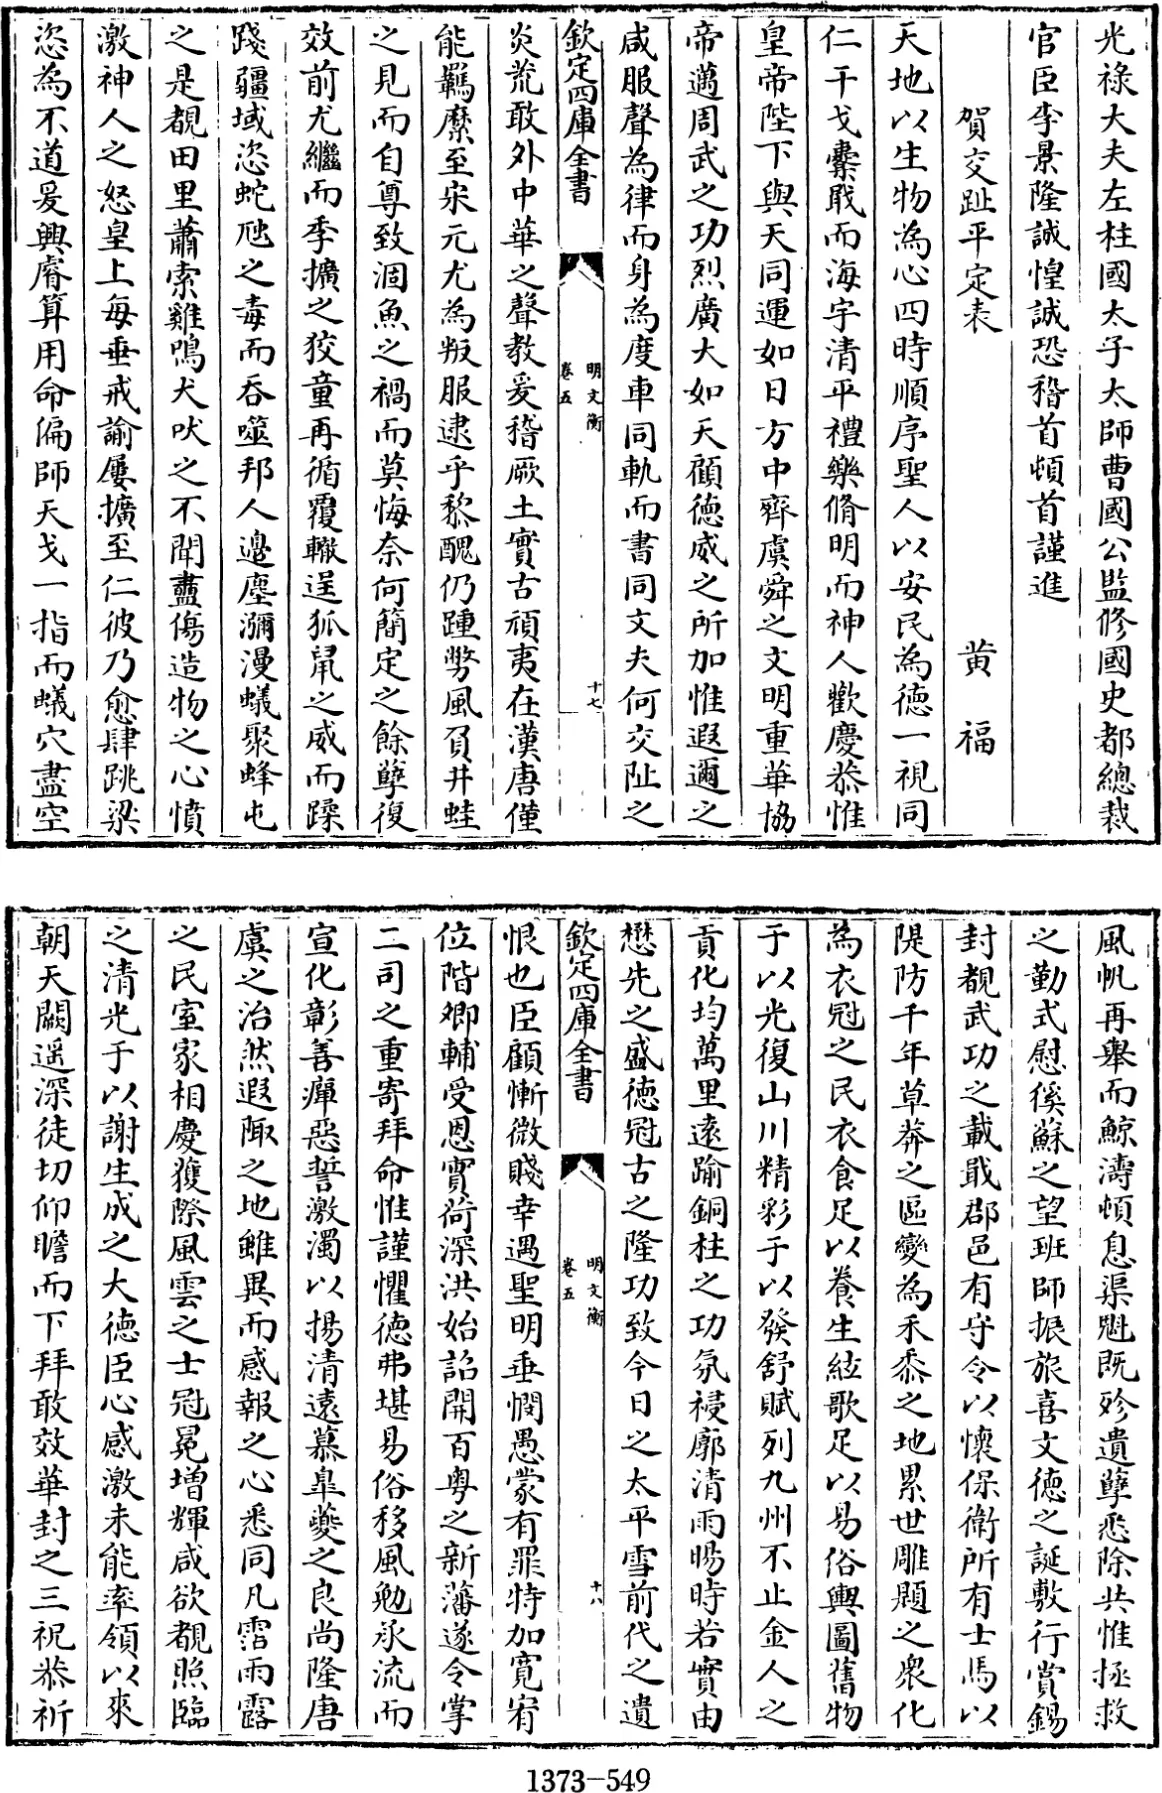 光祿大夫左柱國太子太師曹國公監修國史都總裁
官臣李景隆誠惶誠恐稽首頓首謹進
賀交趾平定表 黄福
天地以生物為心四時順序聖人以安民為德一視同
仁干戈櫜戢而海宇清平禮樂脩明而神人歡慶恭惟
皇帝陛下與天同運如日方中齊虞舜之文明重華協
帝邁周武之功烈廣大如天顧德威之所加惟遐邇之
咸服聲為律而身為度車同軌而書同文夫何交阯之
欽定四庫全書 明文衡 卷五 十七
炎荒敢外中華之聲教爰稽厥土實古頑夷在漢唐僅
能羈縻至宋元尤為叛服逮乎黎醜仍踵弊風負井蛙
之見而自尊致涸魚之禍而莫悔奈何簡定之餘孽復
效前尤繼而季擴之狡童再循覆轍逞狐鼠之威而蹂
踐疆域恣蛇虺之毒而吞噬邦人邊塵瀰漫蟻聚蜂屯
之是覩田里蕭索雞鳴犬吠之不聞盡傷造物之心憤
激神人之怒皇上每垂戒諭屢擴至仁彼乃愈肆跳梁
恣為不道爰興睿算用命偏師天戈一指而蟻穴盡空
風帆再舉而鯨濤頓息渠魁既殄遺孽悉除共惟拯救
之勤式慰徯蘇之望班師振旅喜文德之誕敷行賞錫
封覩武功之載戢郡邑有守令以懷保衛所有士馬以
隄防千年草莽之區變為禾黍之地累世雕題之衆化
為衣冠之民衣食足以養生絃歌足以易俗輿圖舊物
于以光復山川精彩于以發舒賦列九州不止金人之
貢化均萬里遠踰銅柱之功氛祲廓清雨暘時若實由
懋先之盛德冠古之隆功致今日之太平雪前代之遺
欽定四庫全書 明文衡 卷五 十八
恨也臣顧慚微賤幸遇聖明垂憫愚蒙有罪特加寛宥
位階卿輔受恩實荷深洪始詔開百粤之新藩遂令掌
二司之重寄拜命惟謹懼德弗堪易俗移風勉承流而
宣化彰善癉惡誓激濁以揚清遠慕臯夔之良尚隆唐
虞之治然遐陬之地雖異而感報之心悉同凡霑雨露
之民室家相慶獲際風雲之士冠冕增輝咸欲覩照臨
之清光于以謝生成之大德臣心感激未能率領以來
朝天闕遥深徒切仰瞻而下拜敢效華封之三祝恭祈
1373-549